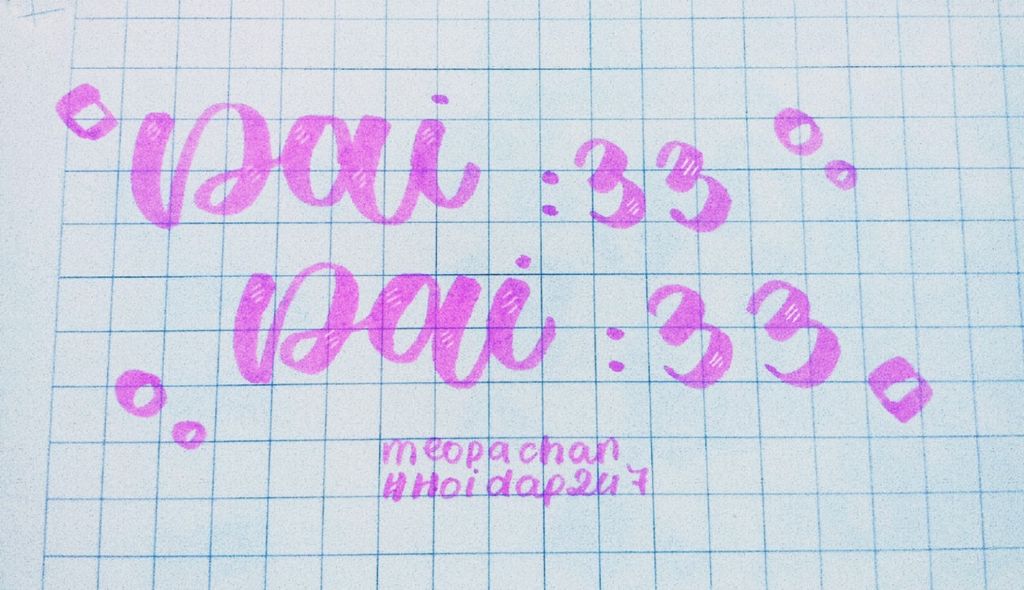 Dai :33
Dai :33
meopachan
#Hoidap247